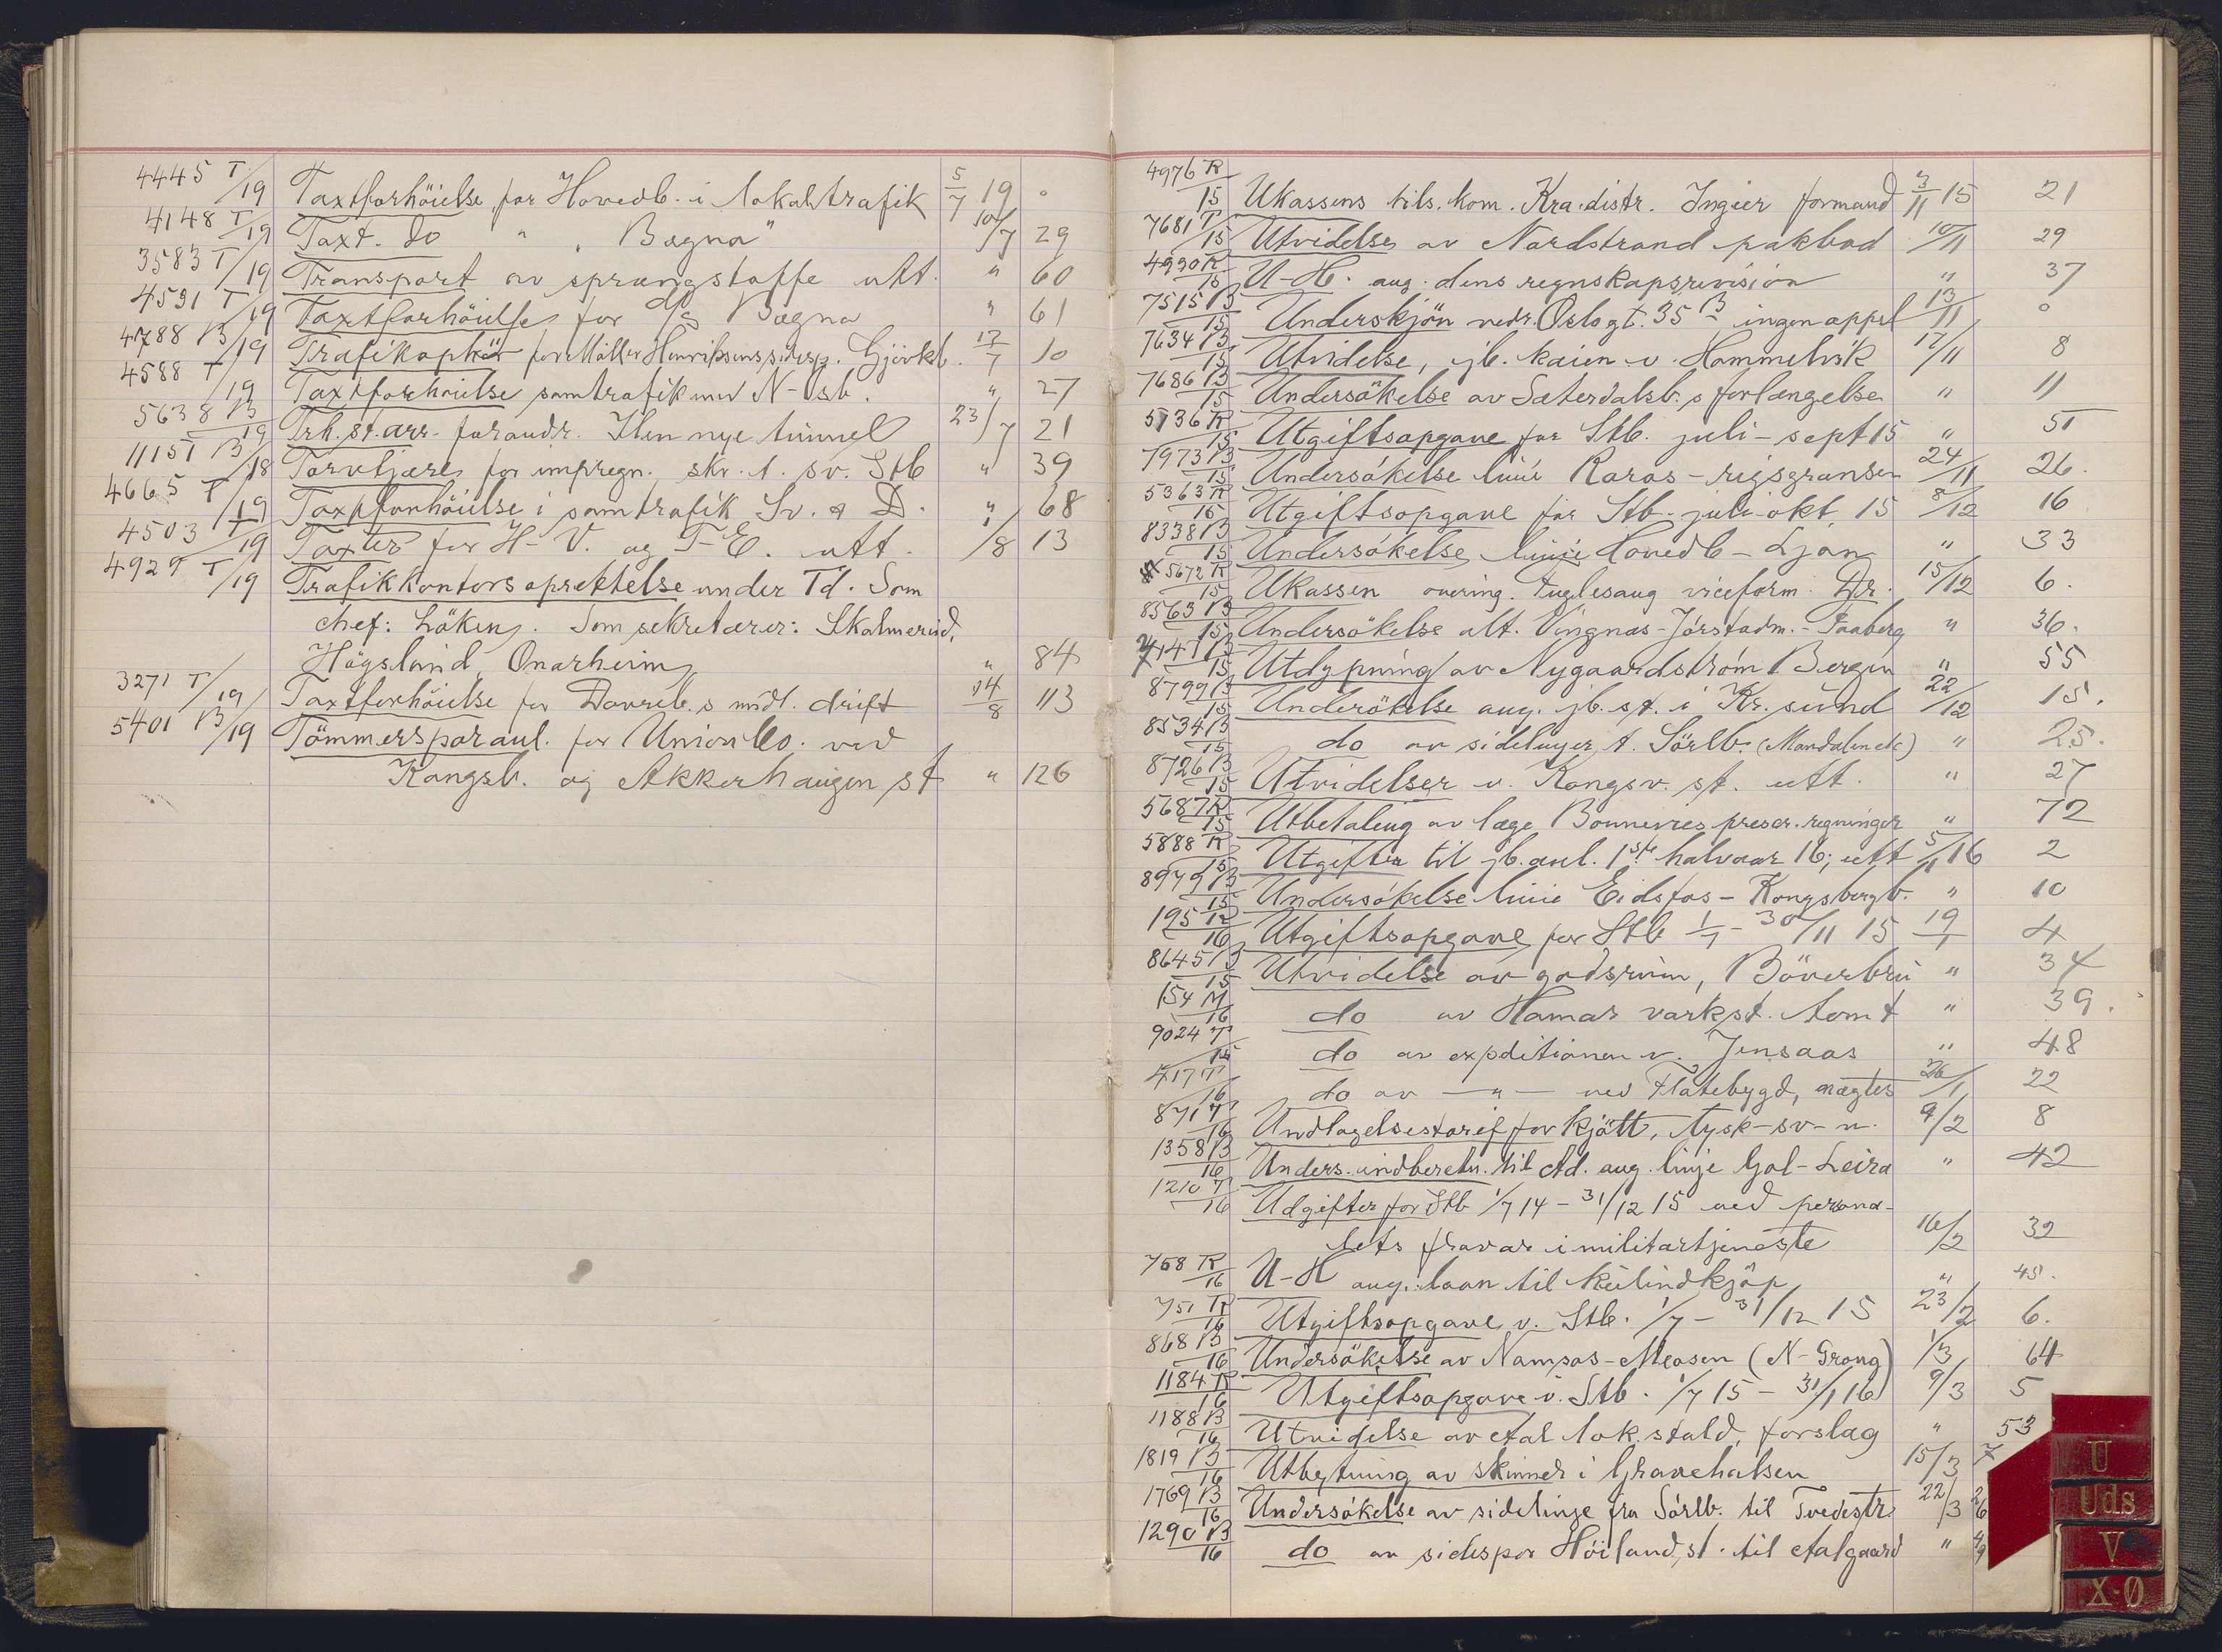 4445 T/19 Taxtforhöielse for Hovedb. i lokaltrafik 5/7 19 0
4148 T/19 Taxt. do " " Bægna" 10/7 29
3583 T/19 Transport av sprængstoffe utt. " 60
4591 T/19 Taxtforhöielse for D/S Bægna " 61
4788 B/19 Trafikophör for Möller Henriksens sidesp. Gjövikb. 17/7 10
4588 T/19 Taxtforhöielse samtrafik med N-Osb. " 27
5638 B/19 Trh. st. arr. forandr. Ilen nye tunnel 23/7 21
11151 B/18 Torvtjære for impregn. skr. t. sv. Stb " 39
4665 T/19 Taxtforhöielse i samtrafik Sv. & D. " 68
4503 T/19 Taxter for H-V. og T-E. utt. 1/8 13
4929 T/19 Trafikkontors oprettelse under Td. Som
chef: Löken. Som sekretærer: Skalmerud,
Högsland, Onarheim " 84
3271 T/19 Taxtforhöielse for Dovreb.s midl. drift 14/8 113
5401 B/19 Tömmerspor anl. for Union Co. ved
Kongsb. og Akkerhaugen st " 126
4976 R/15 Ukassens tils. kom. Kra. distr. Ingier formand 3/11 15 21
7681 T/15 Utvidelse av Nordstrand pakbod 10/11 29
4930 R/15 U-H. ang. dens regnskapsrevision " 37
7515 B/15 Underskjön vedr. Oslogt. 35 B ingen appel 13/11 0
7634 B/15 Utvidelse, jb. kaien v. Hommelvik 17/11 8
7686 B/15 Undersökelse av Sæterdalsb.s forlængelse " 11
5136 R/15 Utgiftsopgave for Stb. juli-sept 15 " 51
7973 B/15 Undersökelse linie Röros-rigsgrænsen 24/11 26.
5363 R/15 Utgiftsopgave for Stb. juli-okt. 15 8/12 16
8338 B/15 Undersökelse linie Hovedb-Ljan " 33
5672 R/15 Ukassen overing. Fuglesang viceform. Dr. 15/12 6.
8563 B/15 Undersökelse alt. Vingnæs-Jörstadm.-Faaberg " 36.
7141 B/15 Utdypning av Nygaardström Bergen " 55
8799 B/15 Undersökelse ang. jb. st. i Kr. sund 22/12 15.
8534 B/15 do av sidelinjer t. Sörlb. (Mandalen etc) " 25.
8726 B/15 Utvidelser v. Kongsv. st. utt. " 27
5687 R/15 Utbetaling av læge Bonnevies prescr. regninger " 72
5888 R/15 Utgifter til jb. anl. 1ste halvaar 16; utt 5/1 16 2
8979 B/15 Undersökelse linie Eidsfos-Kongsbergb. " 10
195 R/16 Utgiftsopgave for Stb 1/7-30/11 15 19/1 4
8645 B/15 Utvidelse av godsrum, Böverbru " 34
154 M/16 do av Hamar verkst. tomt " 39.
9024 T/15 do av expeditionen v. Jensaas " 48
417 T/16 do av - " - ved Flatebygd, nægtes 26/1 22
871 T/16 Undtagelsestarif for kjött, tysk-sv-n. 9/2 8
1358 B/16 Unders. indberetn. til Ad. ang. linje Gol-Leira " 42
1210 T/16 Udgifter for Stb 1/7 14-31/12 15 ved persona-
lets fravær i militærtjeneste 16/2 32
758 R/16 U-H ang. laan til kulindkjöp " 45.
751 R/16 Utgiftsopgave v. Stb. 1/7-31/12 15 23/2 6.
868 B/16 Undersökelse av Namsos-Mosen (N-Grong) 1/3 64
1184 R/16 Utgiftsopgave v. Stb. 1/7 15-31/1 16 9/3 5
1188 B/16 Utvidelse av Aal lok. stald, forslag " 53
1819 B/16 Utbytning av skinner i Gravehalsen 15/3 7
1769 B/16 Undersökelse av sidelinje fra Sörlb. til Tvedestr. 22/3 26
1290 B/16 do av sidespor Höiland st. til Aalgaard " 49
U
Uds
V
X-Ø